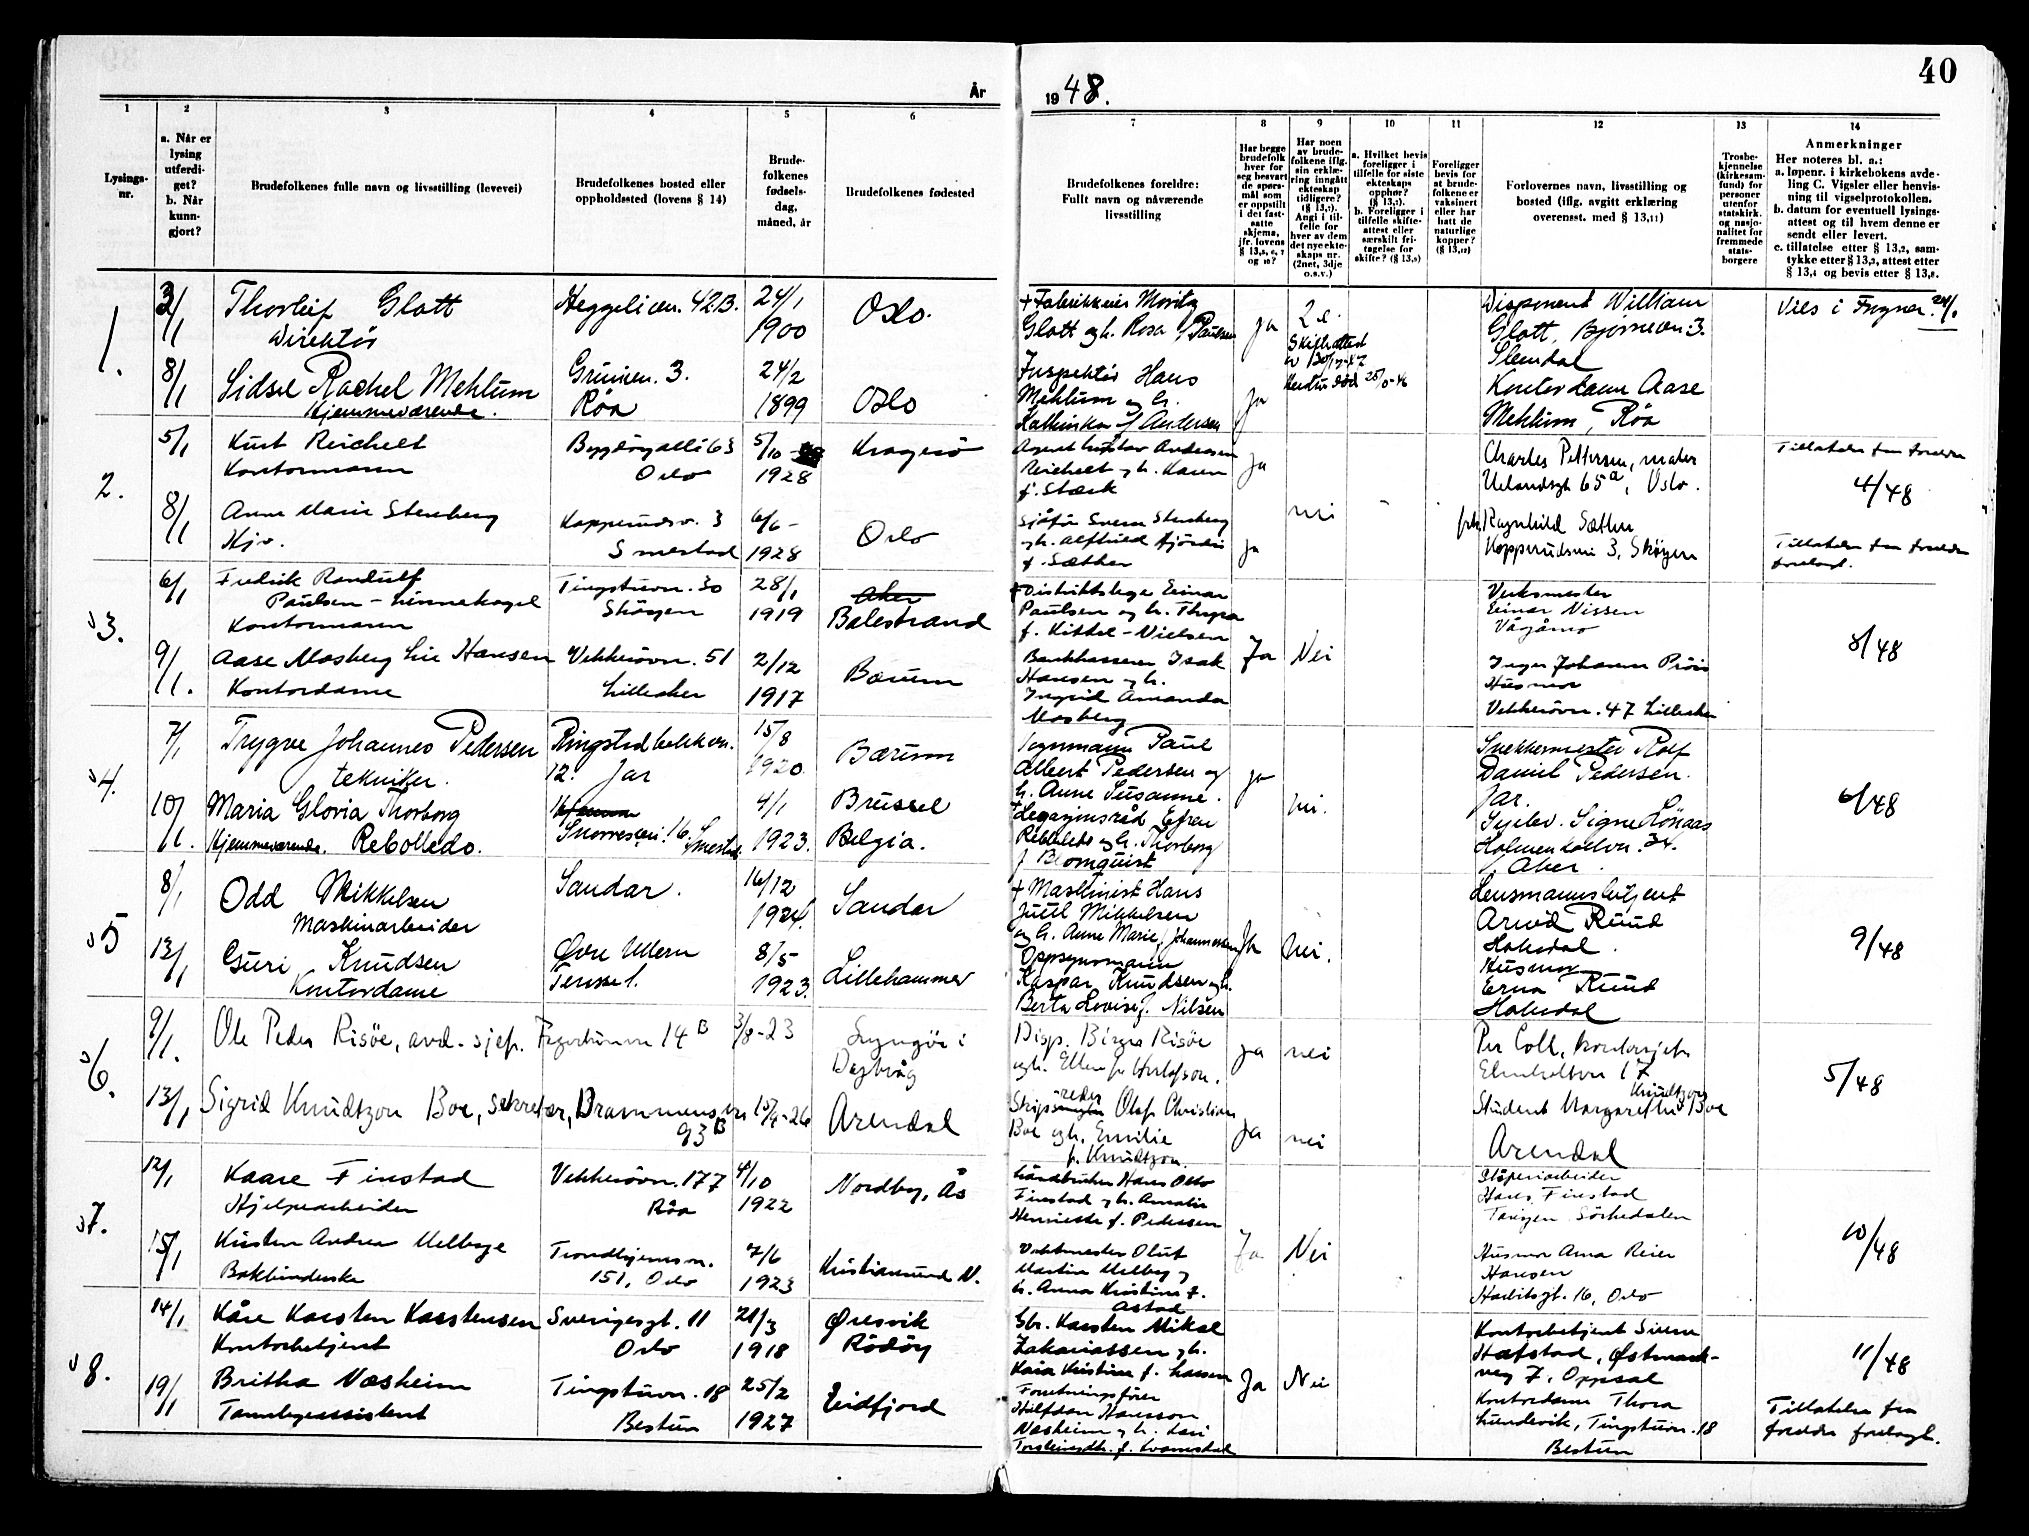 40
År
1948.
1
2
3
4
5
6
7
8
9
10
11
12
13
14
Lysings-
nr.
a. Når er
lysing
utferdi-
get?
b. Når
kunn-
gjort?
Brudefolkenes fulle navn og livsstilling (levevei)
Brudefolkenes bosted eller
oppholdssted (lovens § 14)
Brude-
folkenes
fødsels-
dag,
måned, år
Brudefolkenes fødested
Brudefolkenes foreldre:
Fullt navn og nåværende
livsstilling
Har begge
brudefolk
hver for
seg besvart
de spørs-
mål som
er oppstilt
i det fast-
satte
skjema,
jfr. lovens
§ 13,5, 6, 7
og 10?
Har noen
av brude-
folkene iflg.
sin erklæ-
ring inngått
ekteskap
tidligere?
(§ 13,7).
Angi i til-
felle for
hver av dem
det nye ekte-
skaps nr.
(2net, 3dje
o.s.v.)
a. Hvilket bevis
foreligger i
tilfelle for siste
ekteskaps
opphør?
(§ 13,7).
b. Foreligger i
tilfelle skifte-
attest eller
særskilt fri-
tagelse for
skifte? (§ 13,9)
Foreligger
bevis for
at brude-
folkene er
vaksinert
eller har
hatt de
naturlige
kopper?
(§ 13,10)
Forlovernes navn, livsstilling og
bosted (iflg. avgitt erklæring
overensst. med § 13,11)
Trosbe-
kjennelse
(kirkesam-
fund) for
personer
utenfor
statskirk.
og nasjo-
nalitet for
fremmede
stats-
borgere
Anmerkninger
Her noteres bl. a.:
a. løpenr. i kirkebokens avde-
ling C. Vigsler eller henvis-
ning til vigselprotokollen.
b. datum for eventuell lysings-
attest og til hvem denne er
sendt eller levert.
c. tillatelse etter § 13,2, sam-
tykke etter § 13,3, attest etter
§ 13,4 og bevis etter § 13,8.
1.
3/1
Thorleif Glott
Direktør
Heggelien. 42B.
24/1
1900
Oslo.
+ Fabrikkeier Moritz
Glott og h. Rosa f. Paulsen
ja
2 e.
Skifteattest
Disponent William
Glott, Bjørnevn. 3.
Slemdal
Viels i Frogner 24/1
8/1
Sidsel Rachel Mehlum
Hjemmeværende.
Grinien. 3.
Røa
24/2
1899
Oslo
Inspektør Hans
Mehlum og h.
Kathinka f. Andersen
Ja
Kontordame Aase
Mehlum, Røa
2.
5/1
Kurt Reichelt
Kontormann
Bygdøyallé 63
Oslo
5/10
1928
Kragerø
Agent Gustav Andersen
Reichelt og h. Karen
f. Stærk
Ja
Charles Pettersen, maler
Uelandsgt 65a, Oslo.
Tillatelse fra foreldre
4/48
8/1
Anne Marie Stenberg
Hjv.
Kopperudsv. 3
Smestad
6/6 -
1928
Oslo
Sjåfør Svenn Stenberg
og h. Alfhild Hjördis
f. Sæther
ja
nei
-
frk. Ragnhild Sæther
Kopperudsvei 3, Skøyen
Tillatelse fra foreldre
forelagt.
3.
6/1
Fredrik Randulf
Paulsen - Linnekogel
Kontormann
Tingstuvn. 30
Skøyen
28/1
1919
Aker
Balestrand
+ Distriktslege Einar
Paulsen og h. Thyra
f. Kittel-Nielsen
Ja
Nei
Verksmester
Einar Nissen
Vågåmo
8/48
9/1.
Aase Mosberg Lie Hansen
Kontordame
Vekkerövn. 51
Lilleaker
2/12
1917
Bærum
Bankkasserer Isak
Hansen og h.
Ingrid Amanda
Mosberg
Inger Johanne Pröis
Husmor
Vekkerövn. 47 Lilleaker
4.
7/1
Trygve Johannes Pedersen
tekniker.
Ringstadbekkvn.
12. Jar
15/8
1920.
Bærum
Tegnmann Paul
Albert Pedersen og
h. Anne Susanne.
ja
nei.
Snekkermester Rolf
Daniel Pedersen.
Jar.
6/48
10/1.
Maria Gloria Thorborg
Hjemmeværende. Rebolledo.
Snorresvei. 16. Smestad.
4/1
1923.
Brussel
Belgia.
+ Legasjonsråd Efren
Rebolledo og h. Thorborg
f. Blomquist
Sykev. Signe Lönaas
Holmenkollvn. 34.
Aker.
5
8/1
Odd Mikkelsen
Maskinarbeider
Sandar.
16/12
1924.
Sandar
+ Maskinist Hans
Juul Mikkelsen
og h. Anne Marie f. Johannessen
Ja
nei.
Lensmannsbetjent
Arvid Ruud
Hakedal.
9/48
13/1
Guri Knudsen
Kontordame
Øvre Ullern
Terrasse 1.
8/5
1923.
Lillehammer
Oppsynsmann
Kaspar Knudsen og h.
Berta Lovise f. Nilsen
Husmor
Erna Ruud
Hakedal
6.
9/1.
Ole Peder Risöe, avd.-sjef.
Fagerheimen 14 B
3/8-23
Lyngör i
Dypvåg
Disp. Birger Risöe
og h. Ellen f. Gustafson.
ja
nei
Per Coll, kontorsjef
Elmholtvn 17
5/48
13/1
Sigrid Knudtzon Boe, sekretær,
Drammensvn
93 B
10/4-26
Arendal
reder
Skips Olaf Christian
Boe og h. Emilie
f. Knudtzon.
Ja
nei
Knudtzon
Student Margarethe Boe
Arendal
7.
12/1
Kaare Finstad
Hjelpearbeider
Vekkerövn. 177
Röa
4/10
1922
Nordby, Ås
Gårdbruker Hans Otto
Finstad og h. Amalie
Henriette f. Pedersen
Ja
Nei
Støperiarbeider
Hans Finstad
Tangen Sörkedalen
10/48
15/1
Kirsten Andrea Melbye
Bokbinderske
Trondhjemsvn.
151, Oslo
7/6
1923
Kristiansund N.
Vaktmester Oluf
Martin Melby og
h. Anna Kristine f.
Astad
Husmor Anna Reier
Hansen
Stockholmsgt. 16, Oslo
8.
14/1
Kåre Karsten Karstensen
Kontorbetjent
Sverigesgt. 11
Oslo
21/3
1918
Øresvik
Rödöy
Gbr. Karsten Mikal
Zakariassen og h.
Kaia Kristine f. Larsen
Ja
Nei
Kontorbetjent Sverre
Hafstad, Østmark-
veg 7, Oppsal
11/48
19/1
Britha Næsheim
Tannlegeassistent
Tingstuvn. 18
Bestun
25/2
1927
Eidfjord
Forretningsfører
Halfdan Hansson
Næsheim og h. Kari
Torsteinsdtr. f. Kvamsdal
Kontordame Thora
Lundevik, Tingstuvn. 18
Bestun
Tillatelse fra
foreldre forelagt.